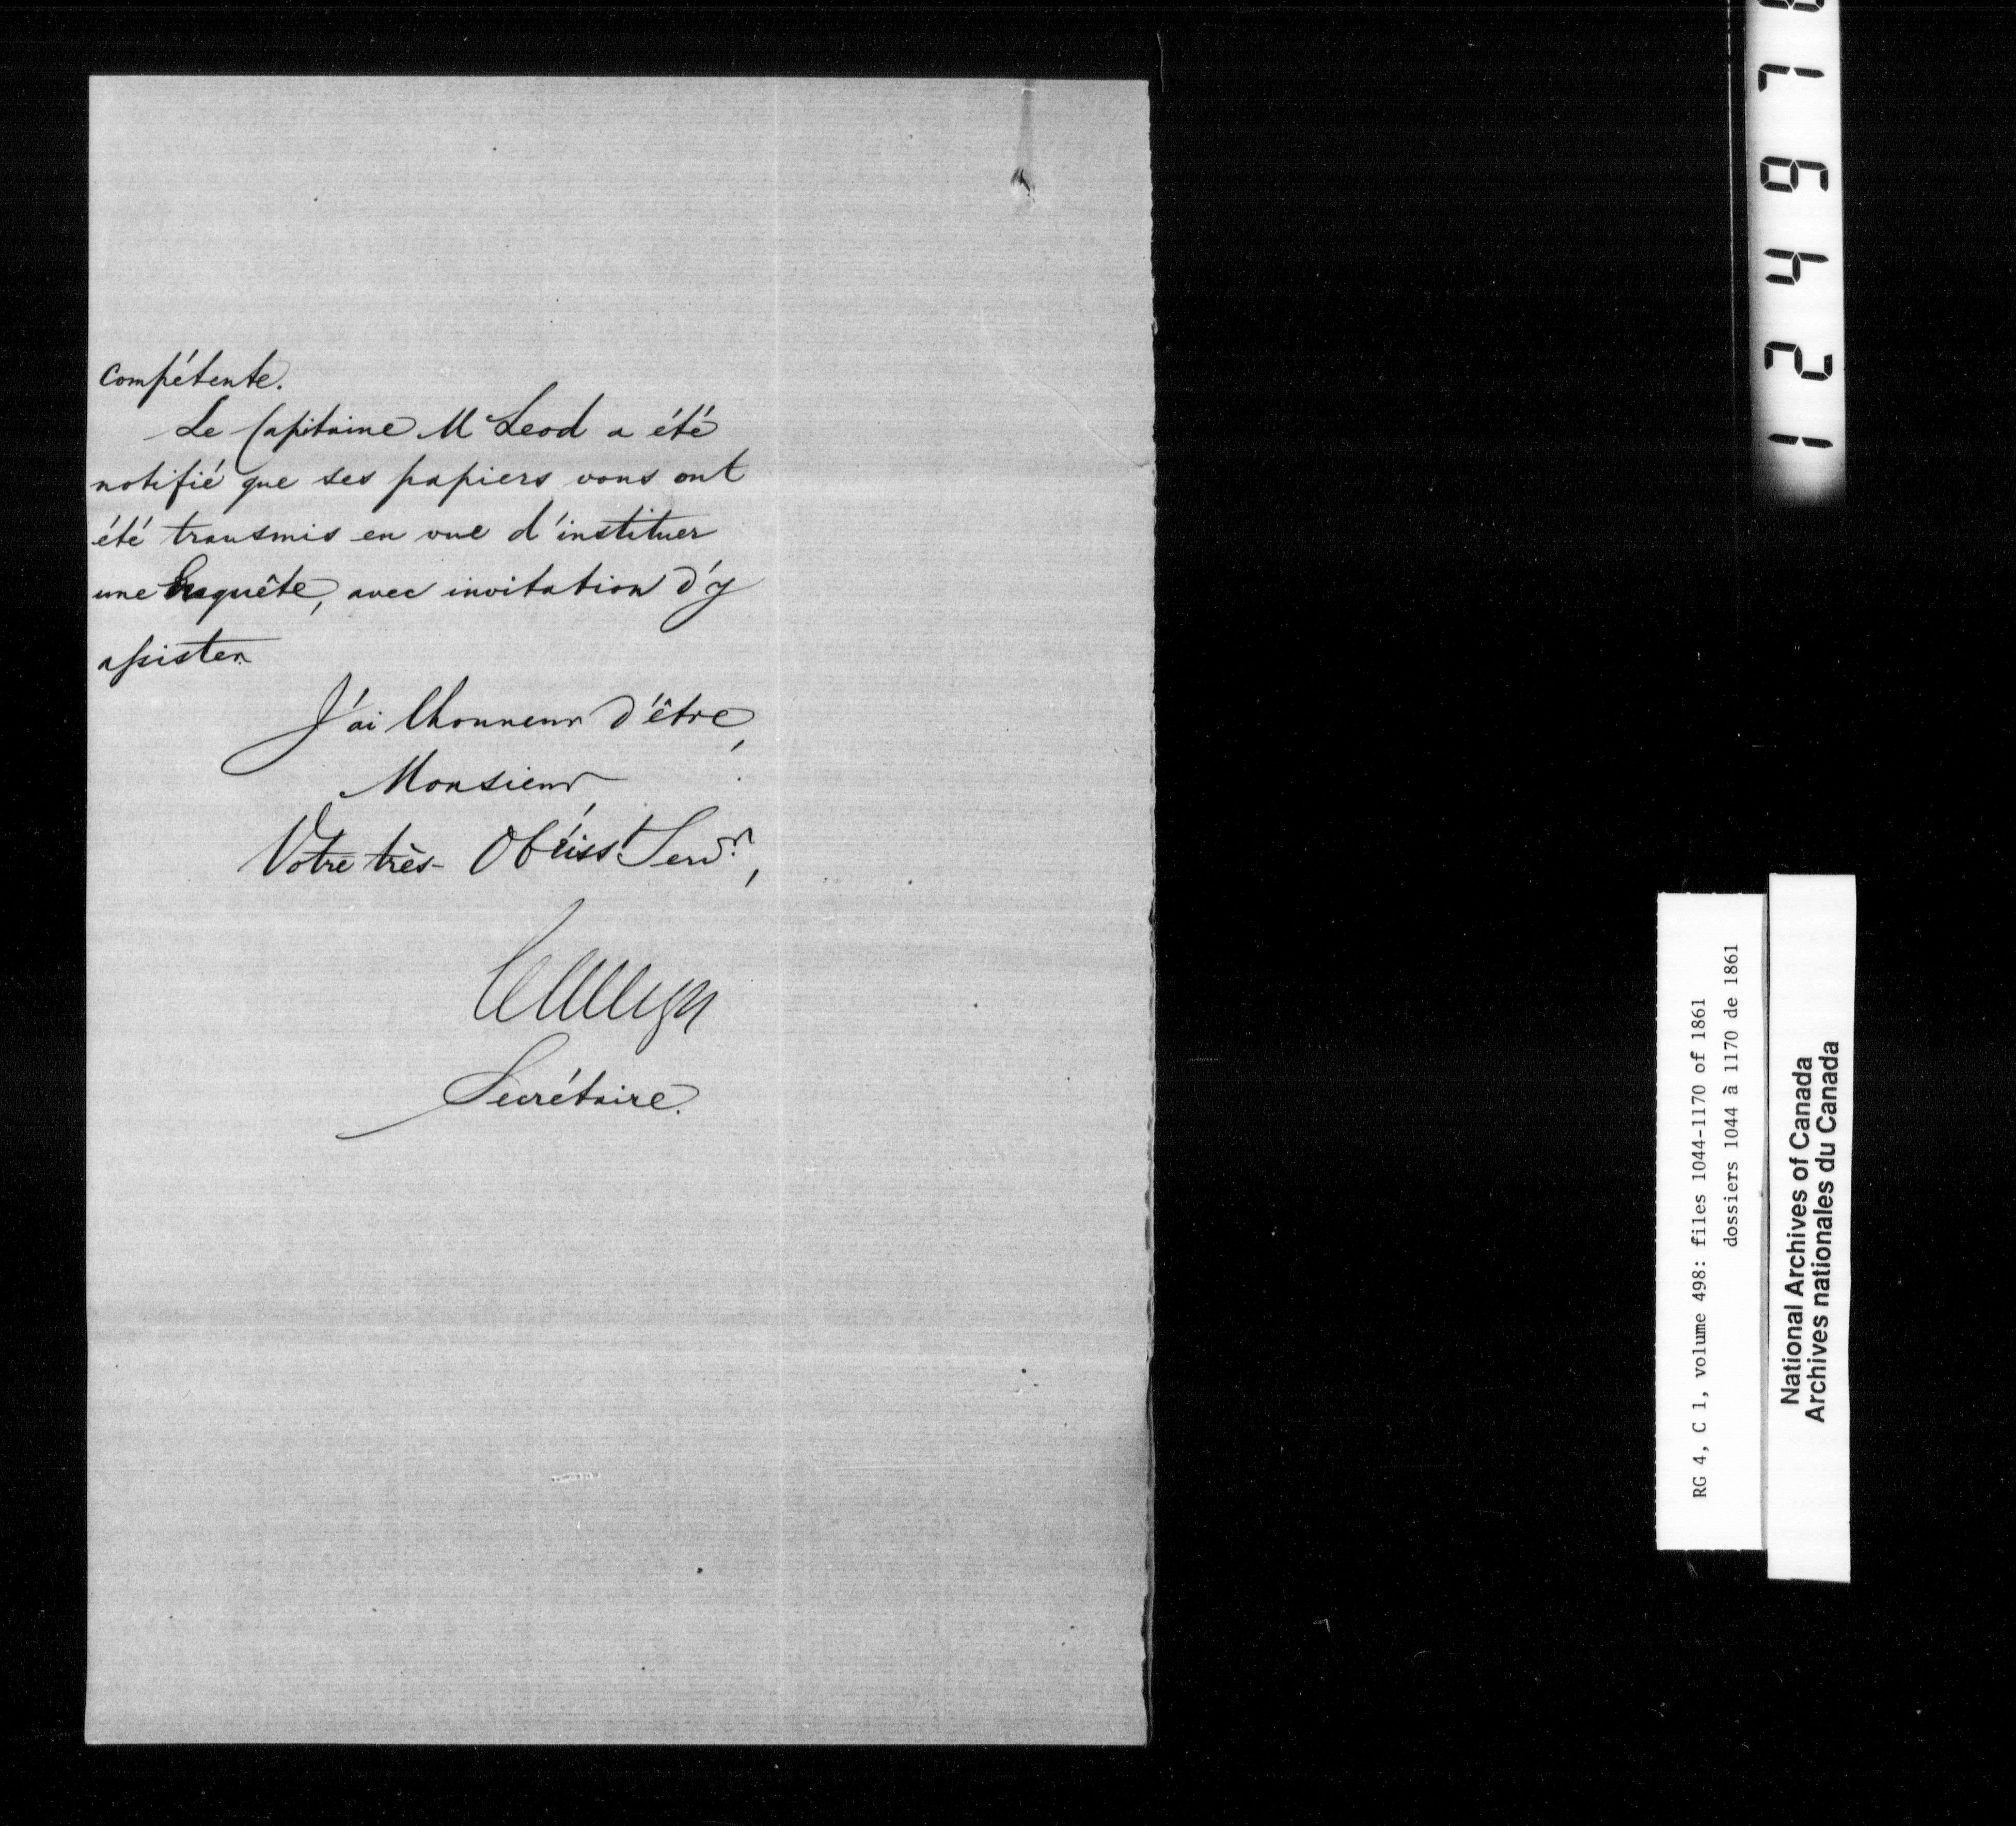 compétente.
Le Capitaine McLeod a été
notifié que ses papiers vous ont
été transmis en vue d'instituer
une Enquête, avec invitation d'y
assister.
J'ai l'honneur d'être,
Monsieur,
Votre très-Obéisst. Servr.,
Secrétaire.
124978
RG 4, C 1, volume 498: files 1044-1170 of 1861
dossiers 1044 à 1170 de 1861
National Archives of Canada
Archives nationales du Canada